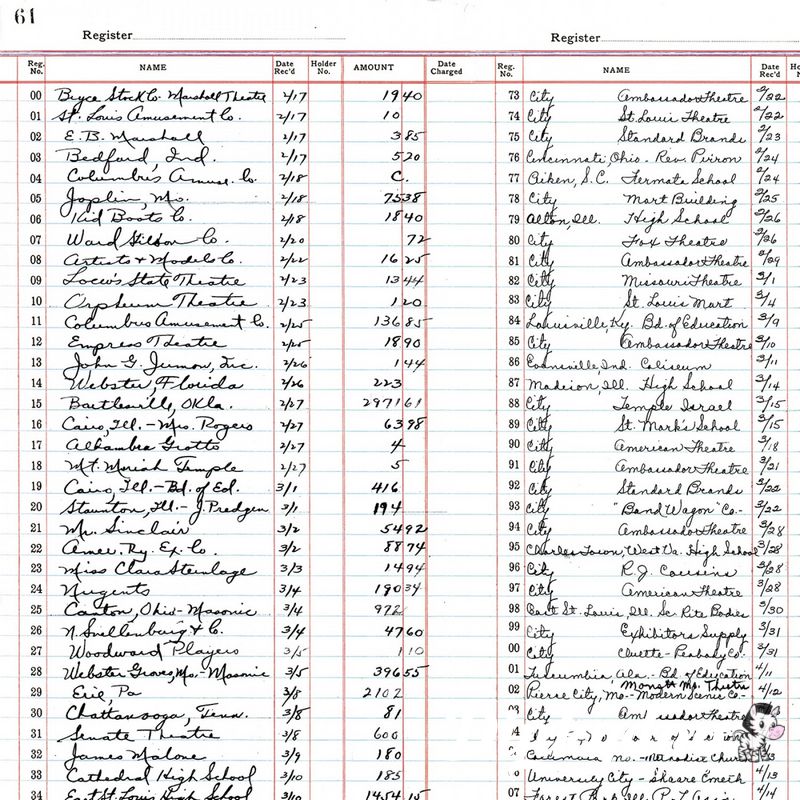 61
Register Register
Reg. No. NAME Date Rec'd Holder No. AMOUNT Date Charged Reg. No. NAME Date Rec'd
00 Bryce Stock Co. Marshall Theatre 2/17 19 40 73 City Ambassador Theatre 2/22
01 St. Louis Amusement Co. 2/17 10 74 City St. Louis Theatre 2/22
02 E.B. Marshall 2/17 3 85 75 City Standard Brands 2/23
03 Bedford, Ind. 2/17 5 20 76 Cincinnati, Ohio - Rev. 2/24
04 Columbus Amuse. Co. 2/18 C. 77 Aiken, S.C. Fermata School 2/24
05 Joplin, Mo. 2/18 75 38 78 City Mart Building 2/25
06 Kid Boots Co. 2/18 18 40 79 Alton, Ill. High School 2/26
07 Ward Co. 2/20 72 80 City Fox Theatre 2/26
08 Artists & Models Co. 2/22 16 25 81 City Ambassador Theatre 2/29
09 Loew's State Theatre 2/23 13 44 82 City Missouri Theatre 3/1
10 Orpheum Theatre 2/23 1 20 83 City St. Louis Mart 3/4
11 Columbus Amusement Co. 2/25 136 85 84 Louisville, Ky. Bd. of Education 3/9
12 Empress Theatre 2/25 18 90 85 City Ambassador Theatre 3/10
13 John G. Jermon, Inc. 2/26 1 44 86 Evansville, Ind. Coliseum 3/11
14 Webster, Florida 2/26 223 87 Madison, Ill. High School 3/14
15 Bartlesville, Okla. 2/27 2971 61 88 City Temple Israel 3/15
16 Cairo, Ill. - Mrs. Rogers 2/27 63 98 89 City St. Mark's School 3/15
17 Alhambra Grotto 2/27 4 90 City American Theatre 3/18
18 Mt. Moriah Temple 2/27 5 91 City Ambassador Theatre 3/21
19 Cairo, Ill. - Bd. of Ed. 3/1 416 92 City Standard Brands 3/22
20 Staunton, Ill. - J. 3/1 194 93 City "Band Wagon" Co. - 3/22
21 Mr. Sinclair 3/2 54 92 94 City Ambassador Theatre 3/28
22 Amer. Ry. Ex. Co. 3/2 88 74 95 Charles Town, West Va. High School 3/28
23 Miss Clara Steinlage 3/3 14 94 96 City R.J. Cousins 3/28
24 Nugents 3/4 190 34 97 City American Theatre 3/28
25 Canton, Ohio - Masonic 3/4 972 98 East St. Louis, Ill. Sc. Rite Bodies 3/30
26 N. Snellenburg & C. 3/4 47 60 99 City Exhibitors Supply 3/31
27 Woodward Players 3/5 1 10 00 City Cluett-Peabody Co. 3/31
28 Webster Groves, Mo. - Masonic 3/5 396 55 01 Tuscumbia, Ala. - Bd. of Education 4/11
29 Erie, Pa 3/8 2102 02 Pierce City, Mo. - Modern Scenic Co. - 4/12
30 Chattanooga, Tenn. 3/8 81 03 City
31 Senate Theatre 3/8 600
32 James Malone 3/9 180
33 Cathedral High School 3/10 185 University City - Shaare Emeth 4/13
34 East St. Louis High School 3/10 1454 15 07 4/14